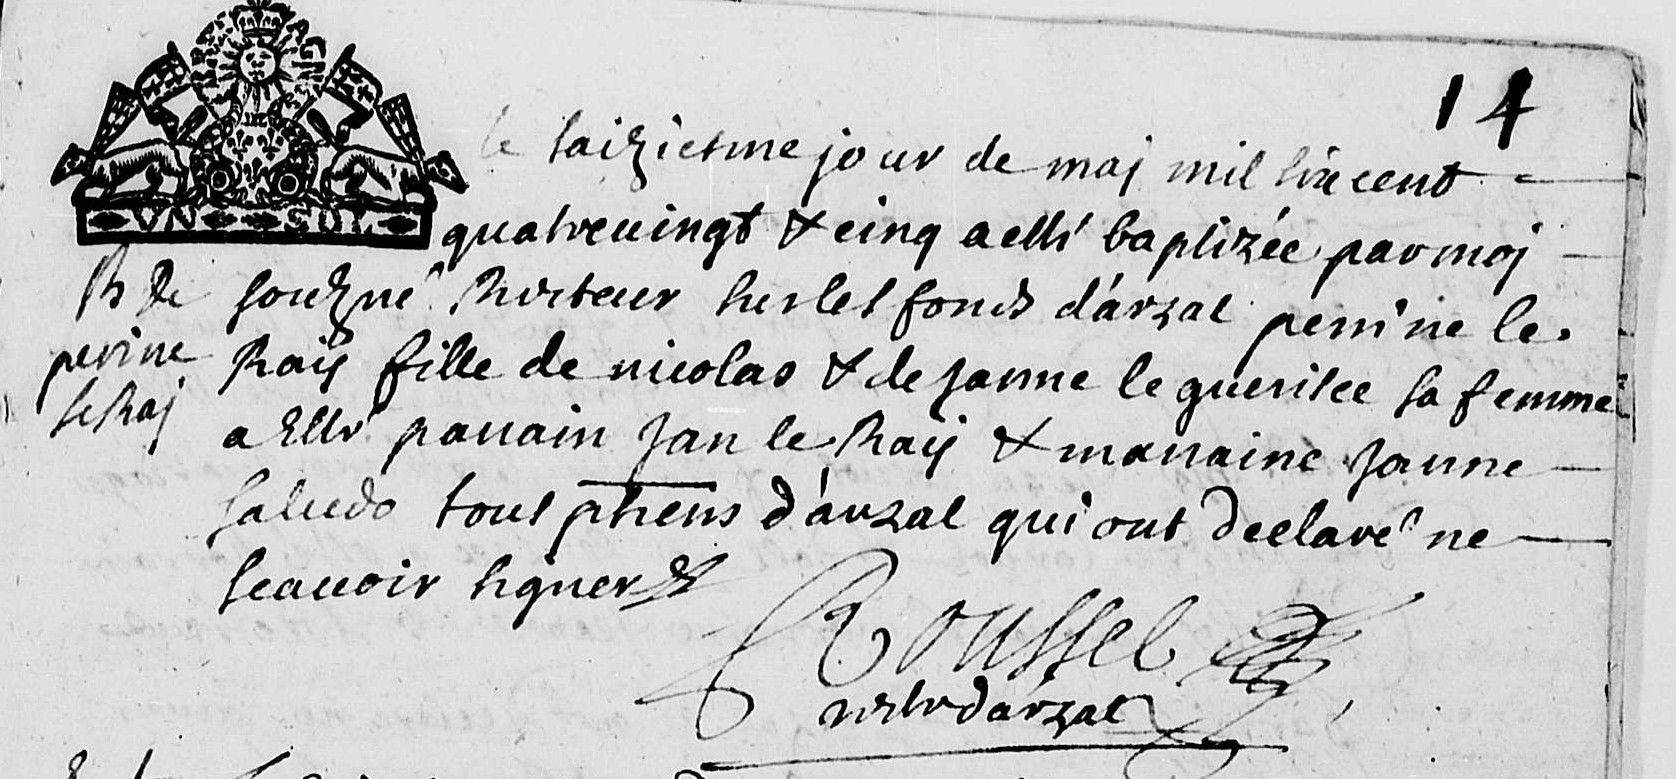 14
UN SOL
le saiziesme jour de maj mil six cent
quatrevingt & cinq a esté baptizée par moj
souzné Recteur sur les fonds d'arzal perrine le
Raÿ fille de nicolas & de janne le guenisee sa femme
a esté parrain Jan le Raÿ & marraine Janne
saludo tous phiens d'arzal qui ont declaré ne
scauoir signer &
B de
perine
le Raj
Roussel
rectr d'arzal